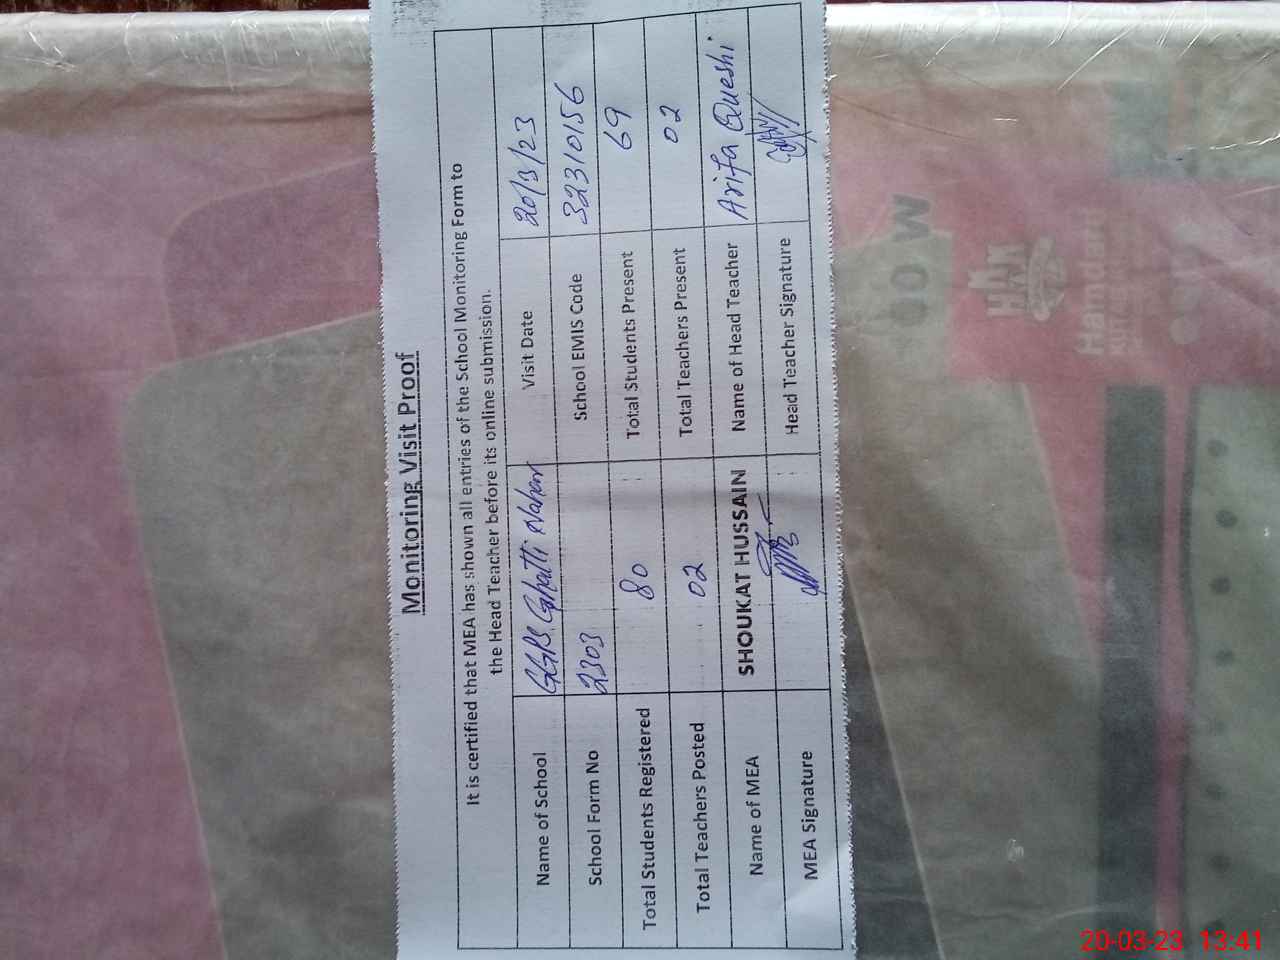 Monitoring Visit Proof
It is certified that MEA has shown all entries of the School Monitoring Form to
the Head Teacher before its online submission.
Name of School GGPS Ghatti Visit Date 20/3/23
School Form No 2303 School EMIS Code 32310156
Total Students Registered 80 Total Students Present 69
Total Teachers Posted 02 Total Teachers Present 02
Name of MEA SHOUKAT HUSSAIN Name of Head Teacher Arifa Queshi
MEA Signature Head Teacher Signature
Hamdard
20-03-23 13:41